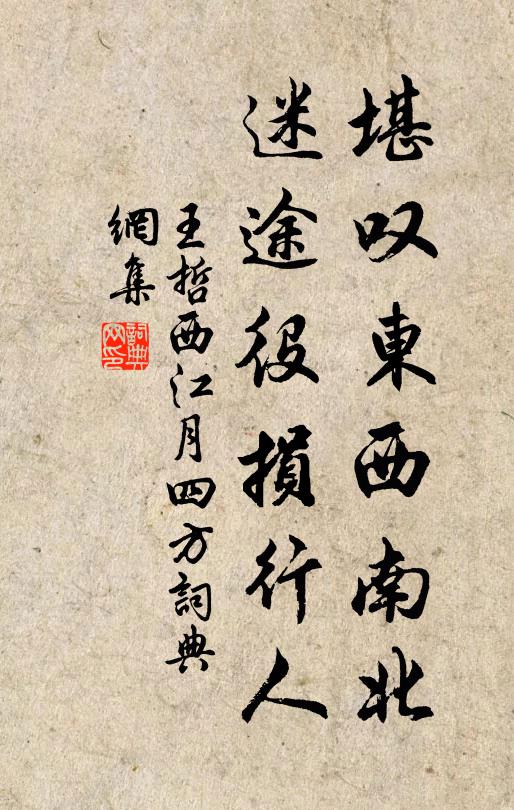 堪叹東西南北
迷途役損行人
王哲西江月四方詞典
網集
詞典
网印